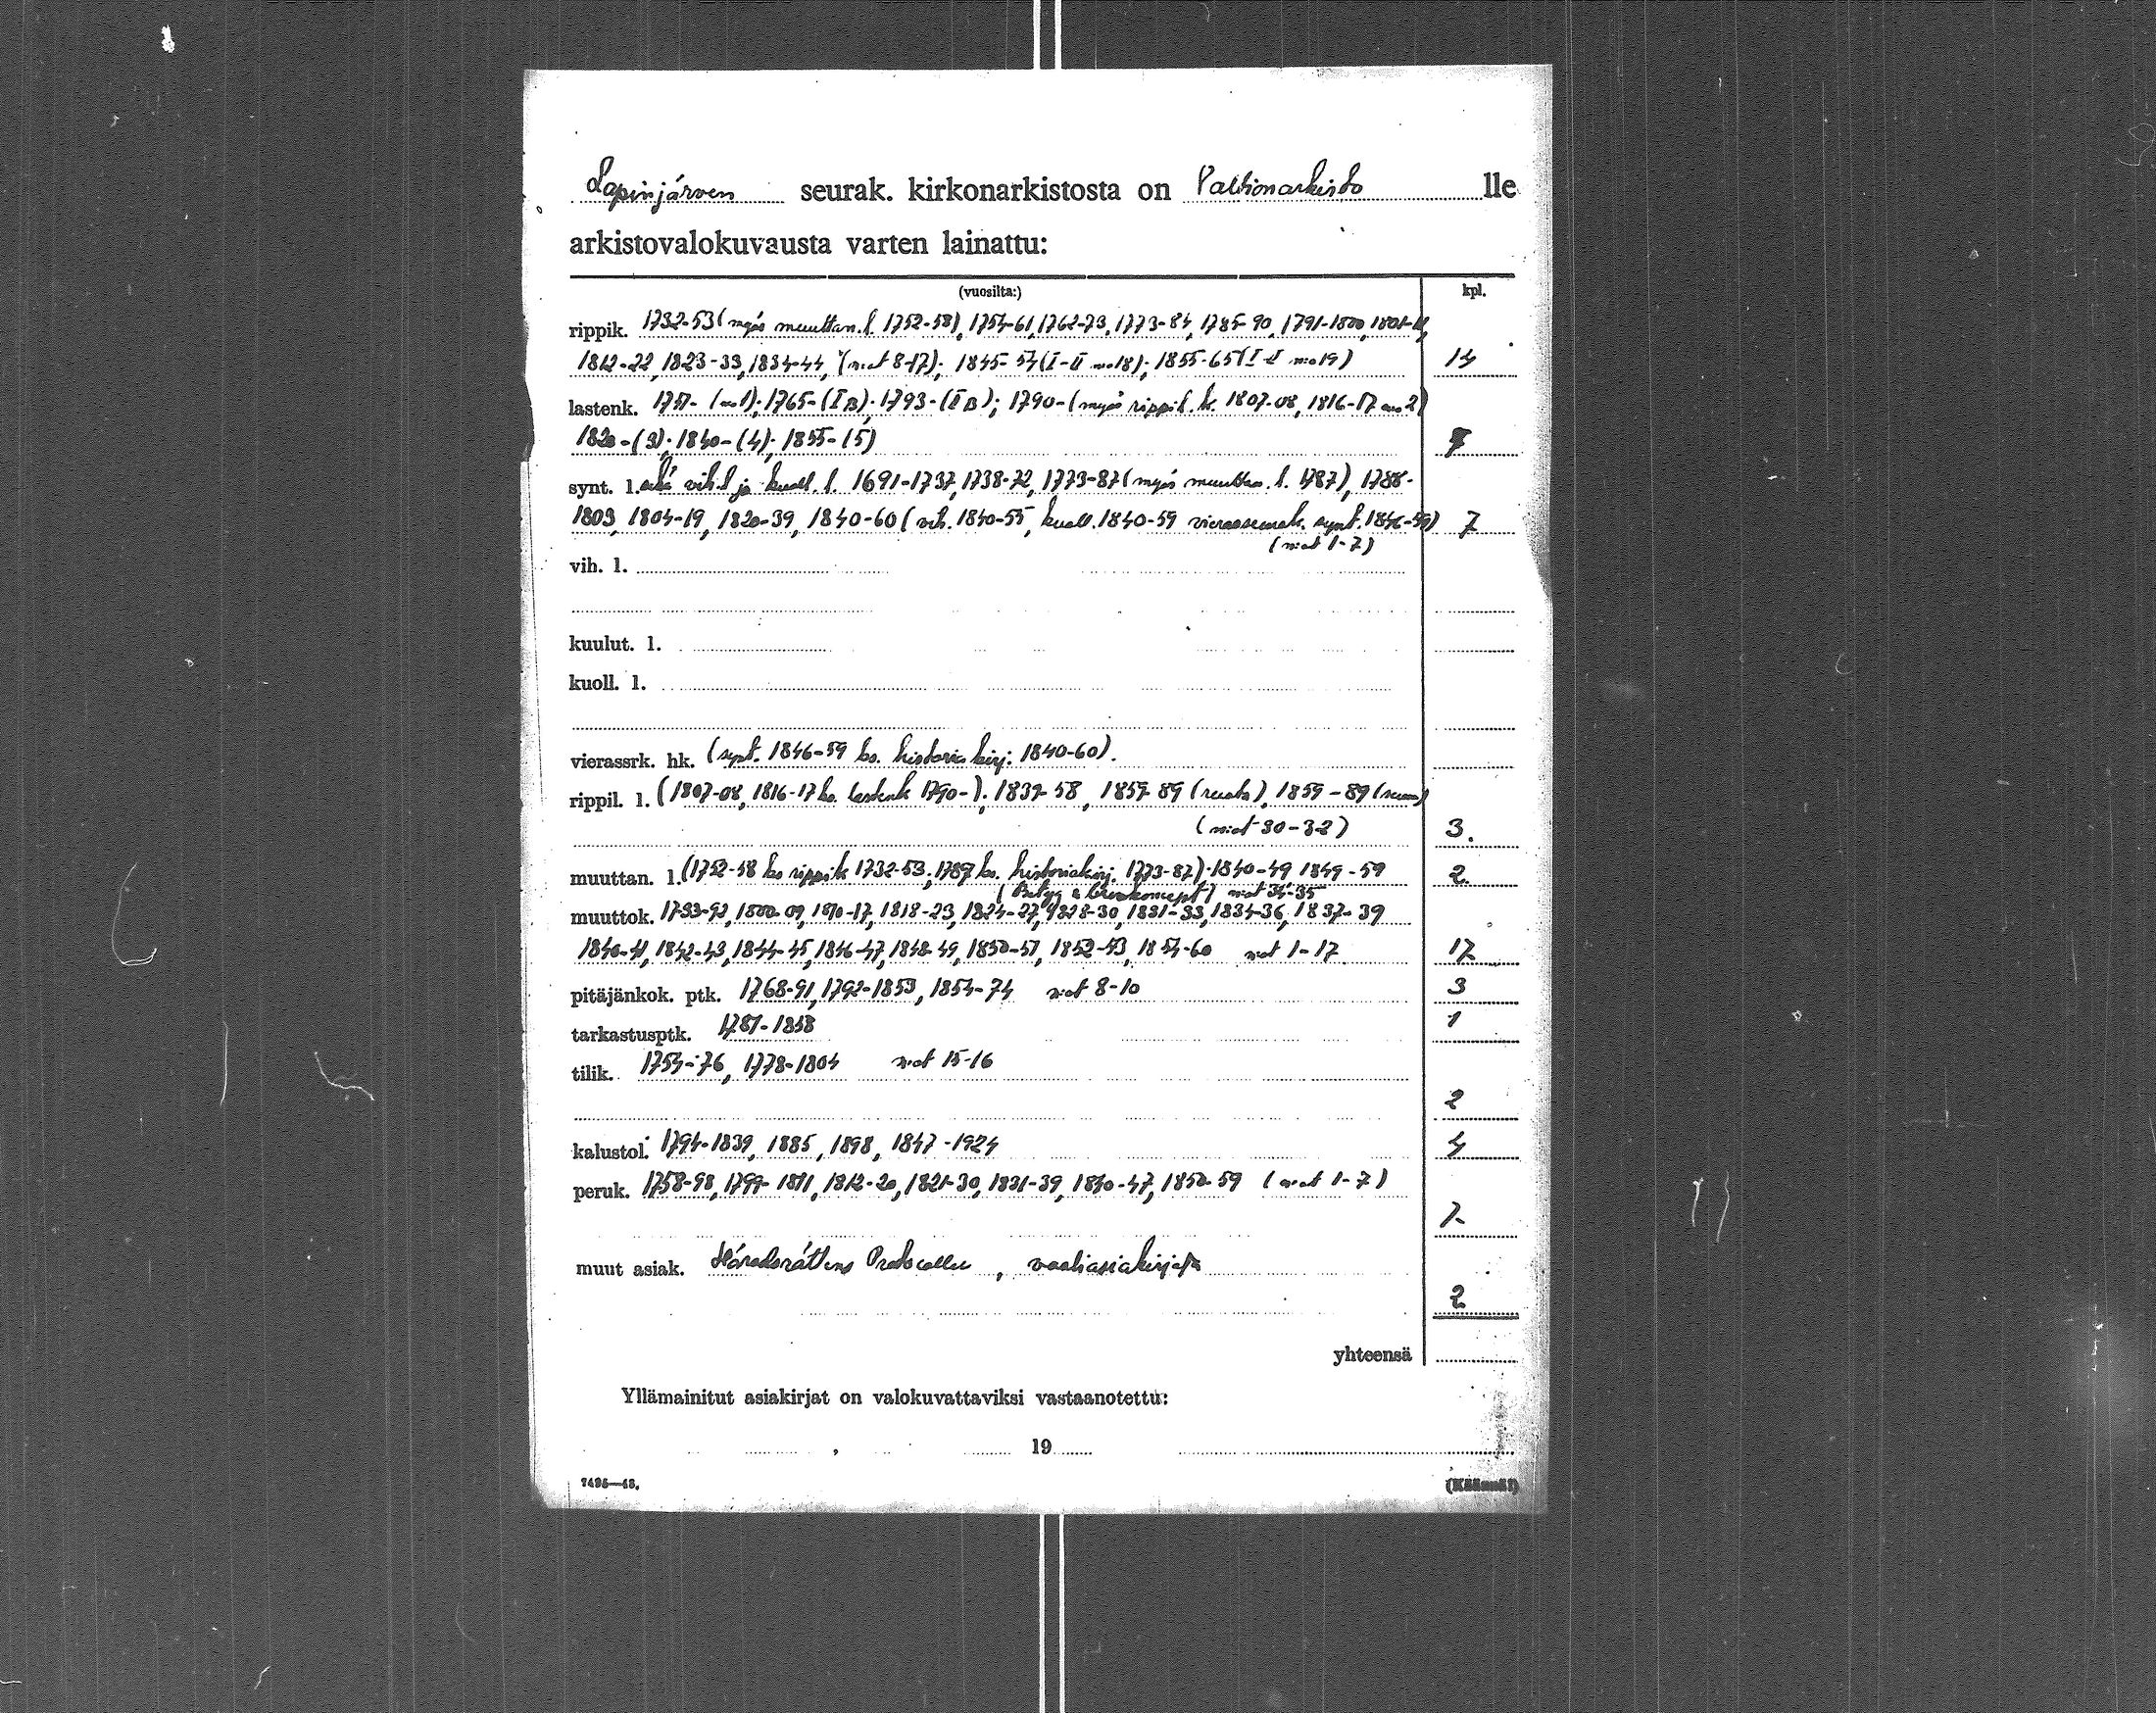 Lapinjärven seurak. kirkonarkistosta on Valtionarkisto lle
arkistovalokuvausta varten lainattu:
(vuosilta:) kpl.
rippik. 1732-53 (myös muuttan. l. 1752-58), 1754-61, 1762-73, 1773-84, 1785-90, 1791-1800, 1801-11,
1812-22, 1823-33, 1834-44, (n:ot 8-17); 1845-54 (I-II n:o 18); 1855-65 (I-II n:o 19) 14
lastenk. 1751- (n:o 1); 1765- (I B); 1793- (II B); 1790- (myös rippil. k. 1807-08, 1816-17 n:o 2)
1820- (3); 1840- (4); 1855- (5) 7
synt. l. sekä vih. l ja kuoll. l. 1691-1737, 1738-72, 1773-87 (myös muuttan. l. 1787), 1788-
1803, 1804-19, 1820-39, 1840-60 (vih. 1840-55, kuoll. 1840-59 vierasseurak. synt. 1846-59) 7
(n:ot 1-7)
vih. l.
kuulut. l.
kuoll. l.
vierassrk. hk. (synt. 1846-59 ks. historiakirj: 1840-60).
rippil. l. (1807-08, 1816-17 ks. lastenk 1790-); 1839-58, 1859-89 (ruots), 1859-89 (suom)
(n:ot 30-32) 3.
muuttan. l. (1752-58 ks rippik 1732-53, 1787 ks. historiakirj. 1773-87); 1840-49 1849-59 2.
n:ot 34-35
muuttok. 1733-92, 1800-09, 1810-17, 1818-23, 1824-27, 1828-30, 1831-33, 1834-36, 1837-39
1840-41, 1842-43, 1844-45, 1846-47, 1848-49, 1850-51, 1852-53, 1854-60 n:ot 1-17 17
pitäjänkok. ptk. 1768-91, 1792-1853, 1854-74 n:ot 8-10 3
tarkastusptk. 1781-1858 1
tilik. 1754-76, 1778-1804 n:ot 15-16
2
kalustol. 1794-1839, 1885, 1898, 1847-1924 4
peruk. 1758-98, 1799-1811, 1812-20, 1821-30, 1831-39, 1840-47, 1850-59 (n:ot 1-7)
7
muut asiak. Häradsrättens Protocoller, vaaliasiakirjat
2
yhteensä
Yllämainitut asiakirjat on valokuvattaviksi vastaanotettu:
, 19
7495—48. (Käännä!)